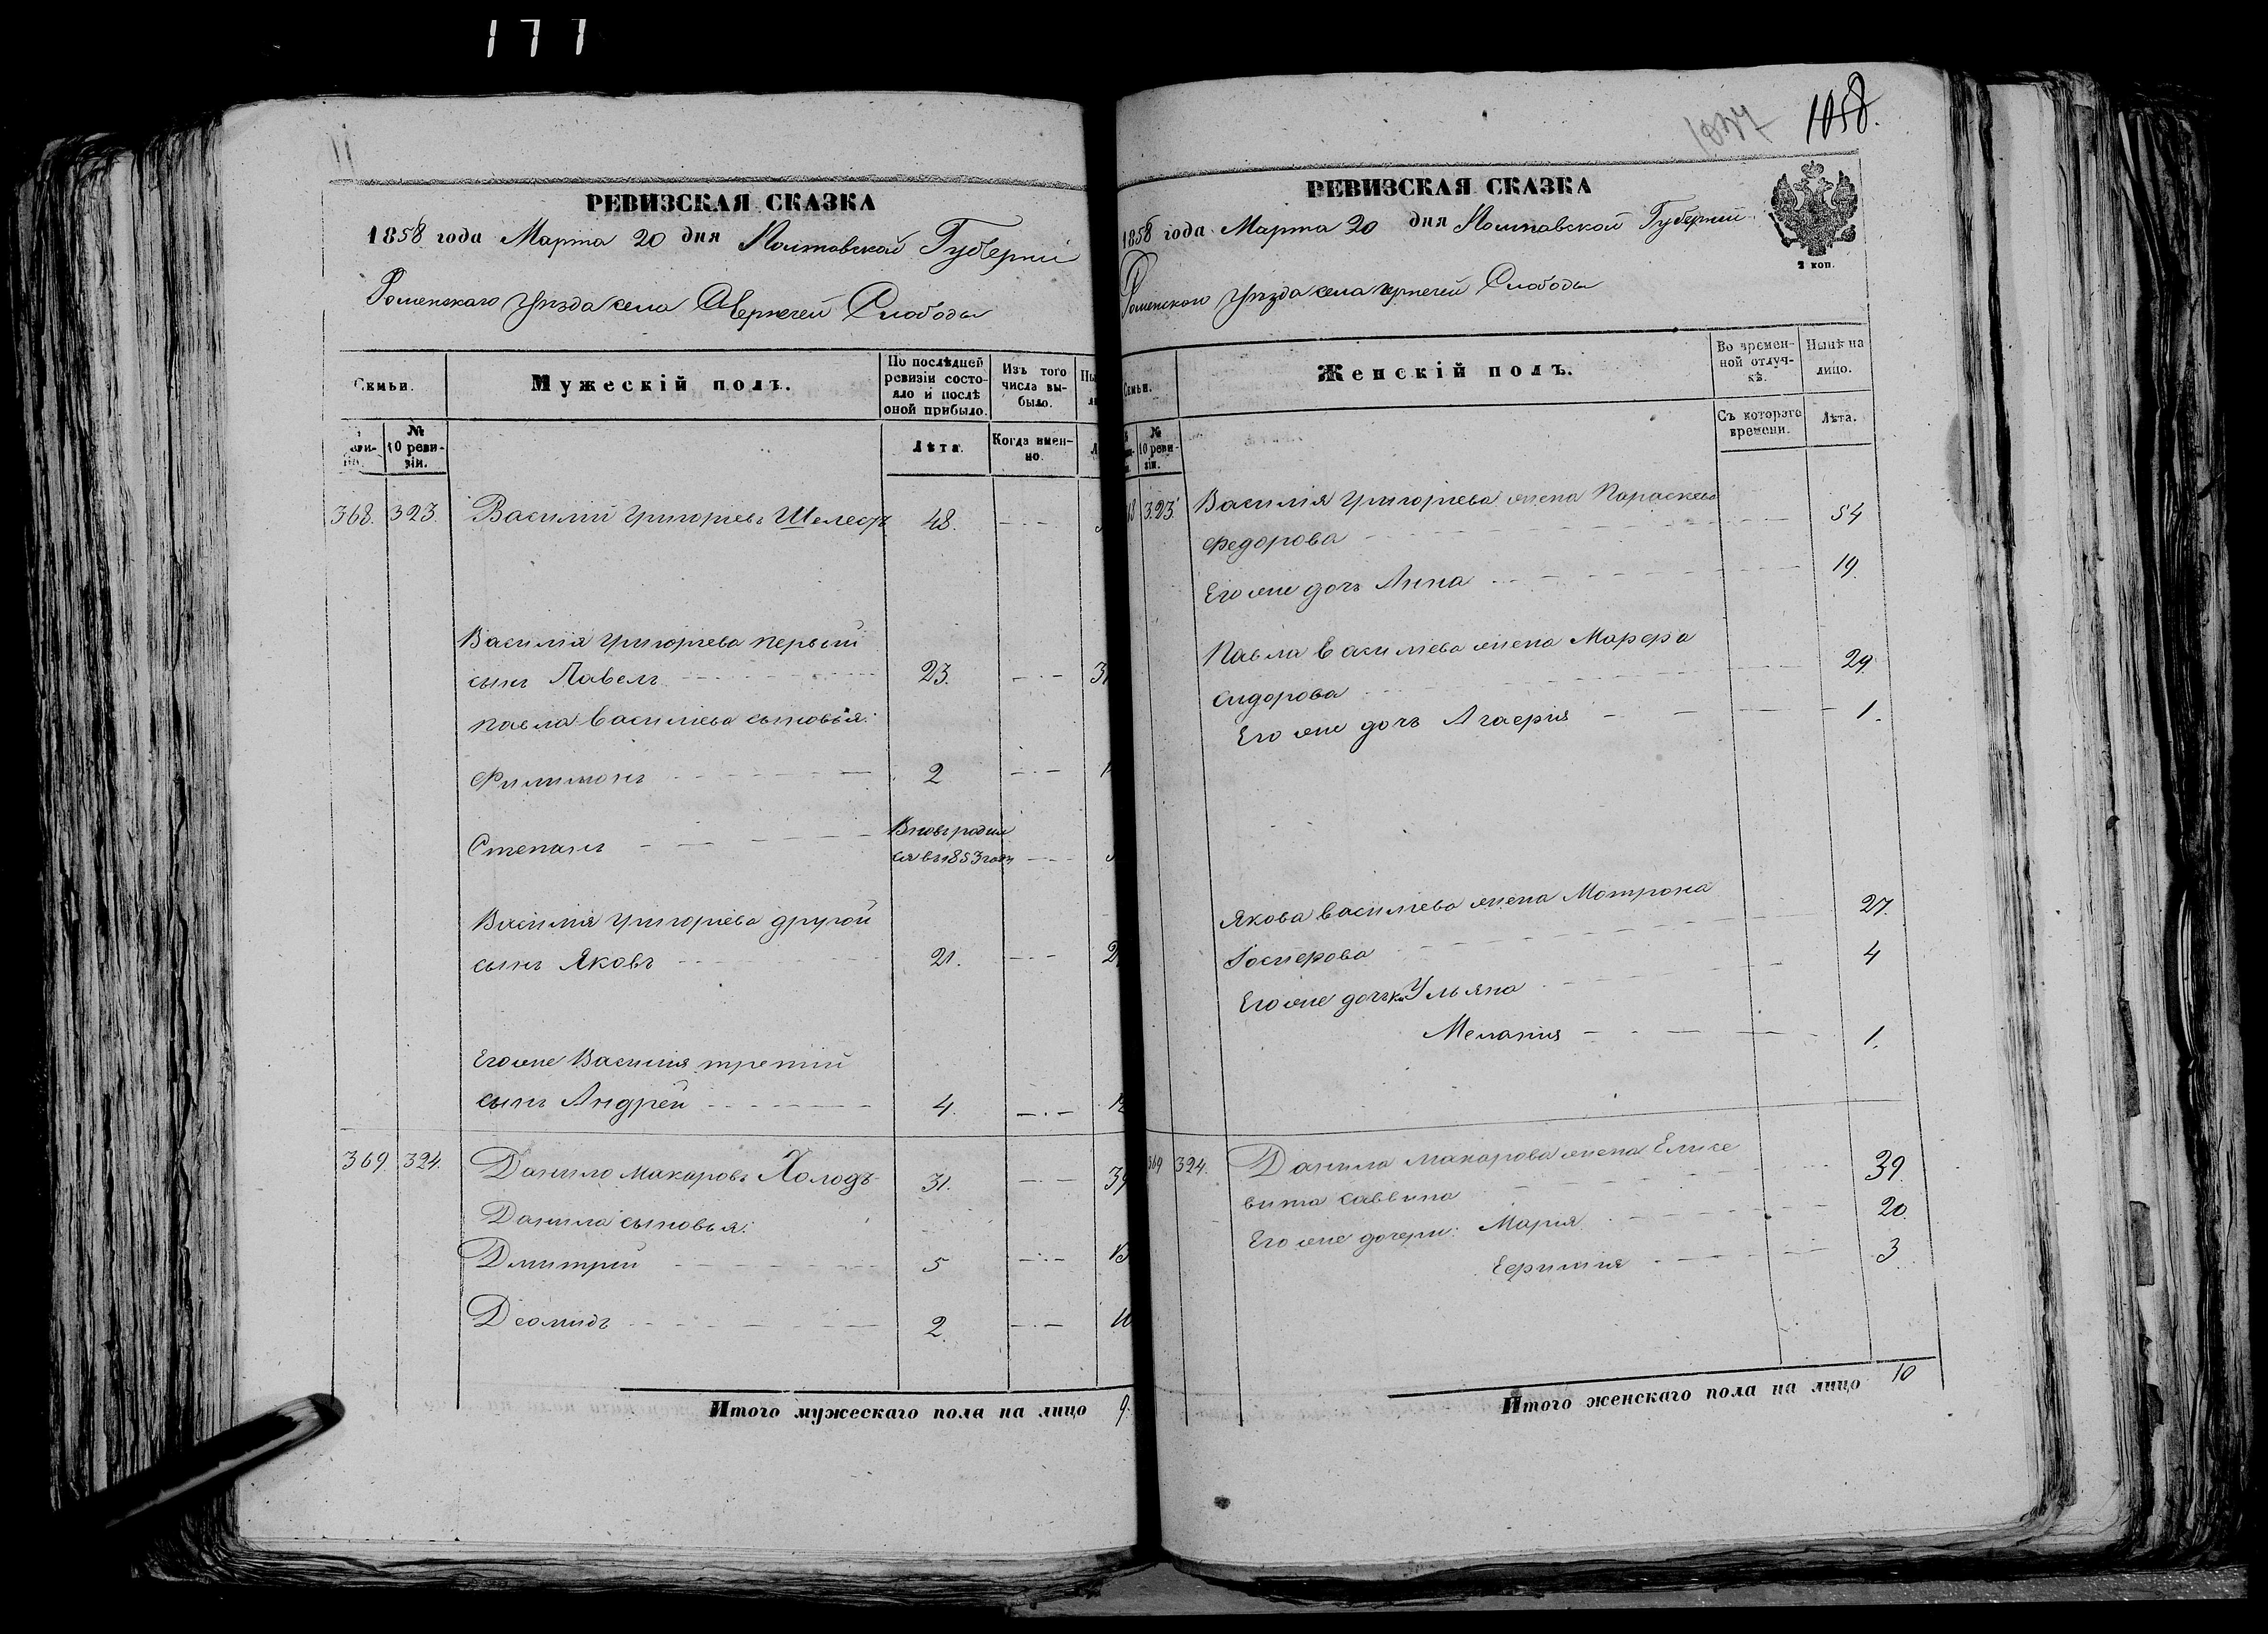 177
РЕВИЗСКАЯ СКАЗКА
1858 года Марта 20 дня Полтавской Губерніи
Роменскаго Уѣзда села Чернечей Слободы
Семьи.
Мужескій полъ.
По послѣдней ревизіи состояло и послѣ оной прибыло.
Изъ того числа выбыло.
№ 10 ревизіи.
Лѣта.
Когда именно.
368. 323. Василій Григоріевъ Шелестъ 48.
Василія Григоріева первый
сынъ Павелъ 23.
Павла Василіева сыновья:
Филимонъ 2
Степанъ Вновь родился въ 1853 году
Василія Григоріева другой
сынъ Яковъ 21.
Его же Василія третій
сынъ Андрей 4.
369. 324. Данило Макаровъ Холодъ 31. 39
Данила сыновья:
Дмитрій 5 13
Деомидъ 2. 10
Итого мужескаго пола на лицо 9.
1058.
РЕВИЗСКАЯ СКАЗКА
1858 года Марта 20 дня Полтавской Губерніи
2 коп.
Роменскаго Уѣзда села Чернечей Слободы
Семьи.
Женскій полъ.
Во временной отлучкѣ.
Нынѣ на лицо.
№ 10 ревизіи.
Съ котораго времени.
Лѣта.
323. Василія Григоріева жена Параскева
Федорова 54
Его же дочь Анна 19.
Павла Василіева жена Марфа
Сидорова 29.
Его же дочь Агафія 1.
Якова Василіева жена Мотрона
27.
Его же дочьки Ульяна 4
Меланія 1.
369 324. Данила Макарова жена Елисе
вита Саввина 39.
Его же дочери: Марія 20.
Ефимія 3
Итого женскаго пола на лицо 10